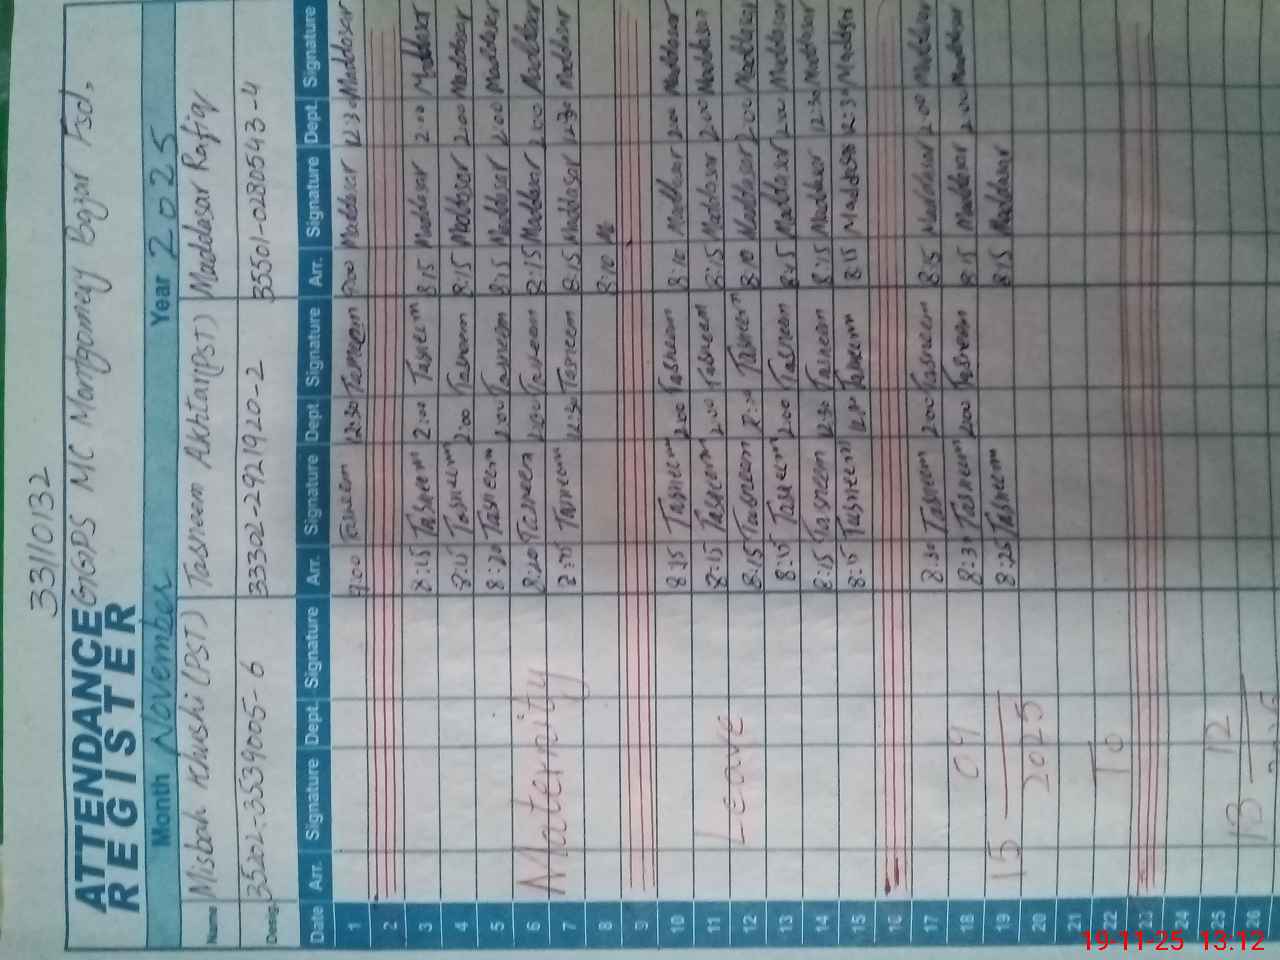 33110132
ATTENDANCE REGISTER
GGPS MC Montgomery Bazar Fsd.
Month November Year 2025
Name Misbah Khushi (PST) Tasneem Akhtar (PST) Maddasar Rafiq
Desig. 33302-2921920-2 33501-0280543-4
Date Arr. Signature Dept. Signature Arr. Signature Dept. Signature Arr. Signature Dept. Signature
1 9:00 Tasneem 12:30 Tasneem 9:00 Maddasar 12:30 Maddasar
2
3 8:15 Tasneem 2:00 Tasneem 8:15 Maddasar 2:00 Maddasar
4 8:15 Tasneem 2:00 Tasneem 8:15 Maddasar 2:00 Maddasar
5 8:20 Tasneem 2:00 Tasneem 8:15 Maddasar 2:00 Maddasar
6 8:20 Tasneem 2:00 Tasneem 8:15 Maddasar 2:00 Maddasar
7 Maternity Tasneem 12:30 Tasneem 8:15 Maddasar 12:30 Maddasar
8 8:10 M
9
10 8:15 Tasneem 2:00 Tasneem 8:10 Maddasar 2:00 Maddasar
11 8:15 Tasneem 2:00 Tasneem 8:15 Maddasar 2:00 Maddasar
12 Leave 8:15 Tasneem Tasneem 8:10 Maddasar 2:00 Maddasar
13 8:15 Tasneem 2:00 Tasneem 8:15 Maddasar 2:00 Maddasar
14 8:15 Tasneem 12:30 Tasneem 8:15 Maddasar 12:30 Maddasar
15 8:15 Tasneem Tasneem 8:15 Maddasar 12:30 Maddasar
16
17 8:30 Tasneem 2:00 Tasneem 8:15 Maddasar 2:00 Maddasar
18 8:30 Tasneem 2:00 Tasneem 8:15 Maddasar 2:00 Maddasar
19 15 04 8:25 Tasneem 8:15 Maddasar
20 2025
21
22 To
23
24
25 13 12
26
19-11-25 13:12